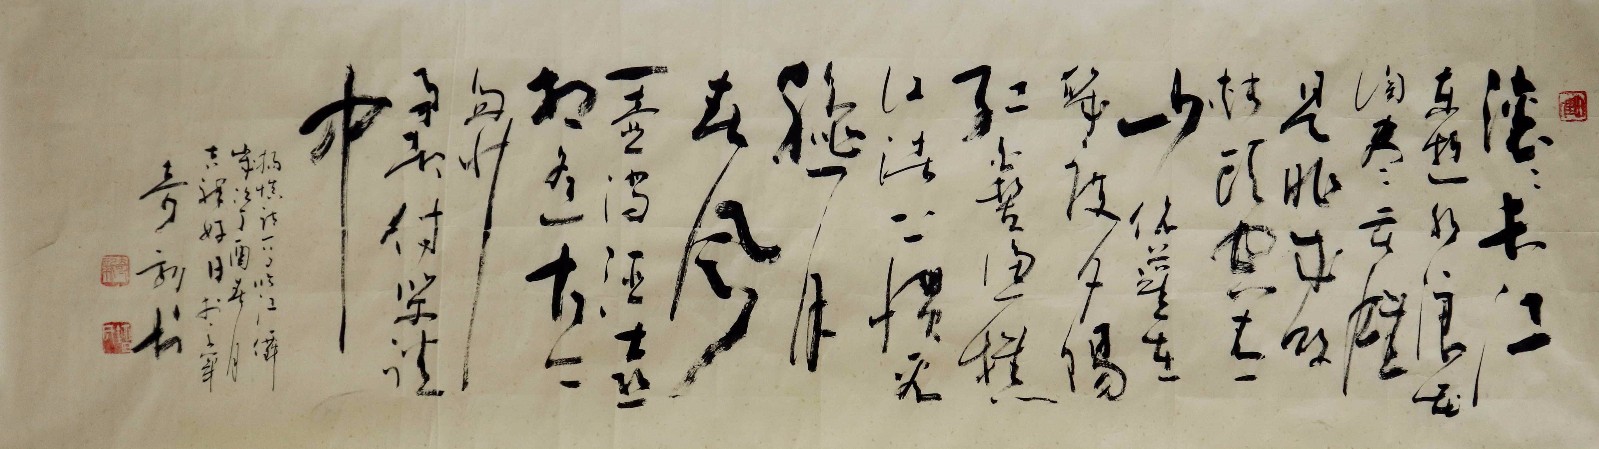 滚滚长江
东逝水浪花
淘尽英雄
是非成败
转头空青
山依旧在
几度夕阳
红白发渔樵
江渚上惯看
秋月
春风
一壶浊酒喜
相逢古今
多少
事都付笑谈
中
杨慎词一首临江仙
岁次丁酉春月
吉祥好日于